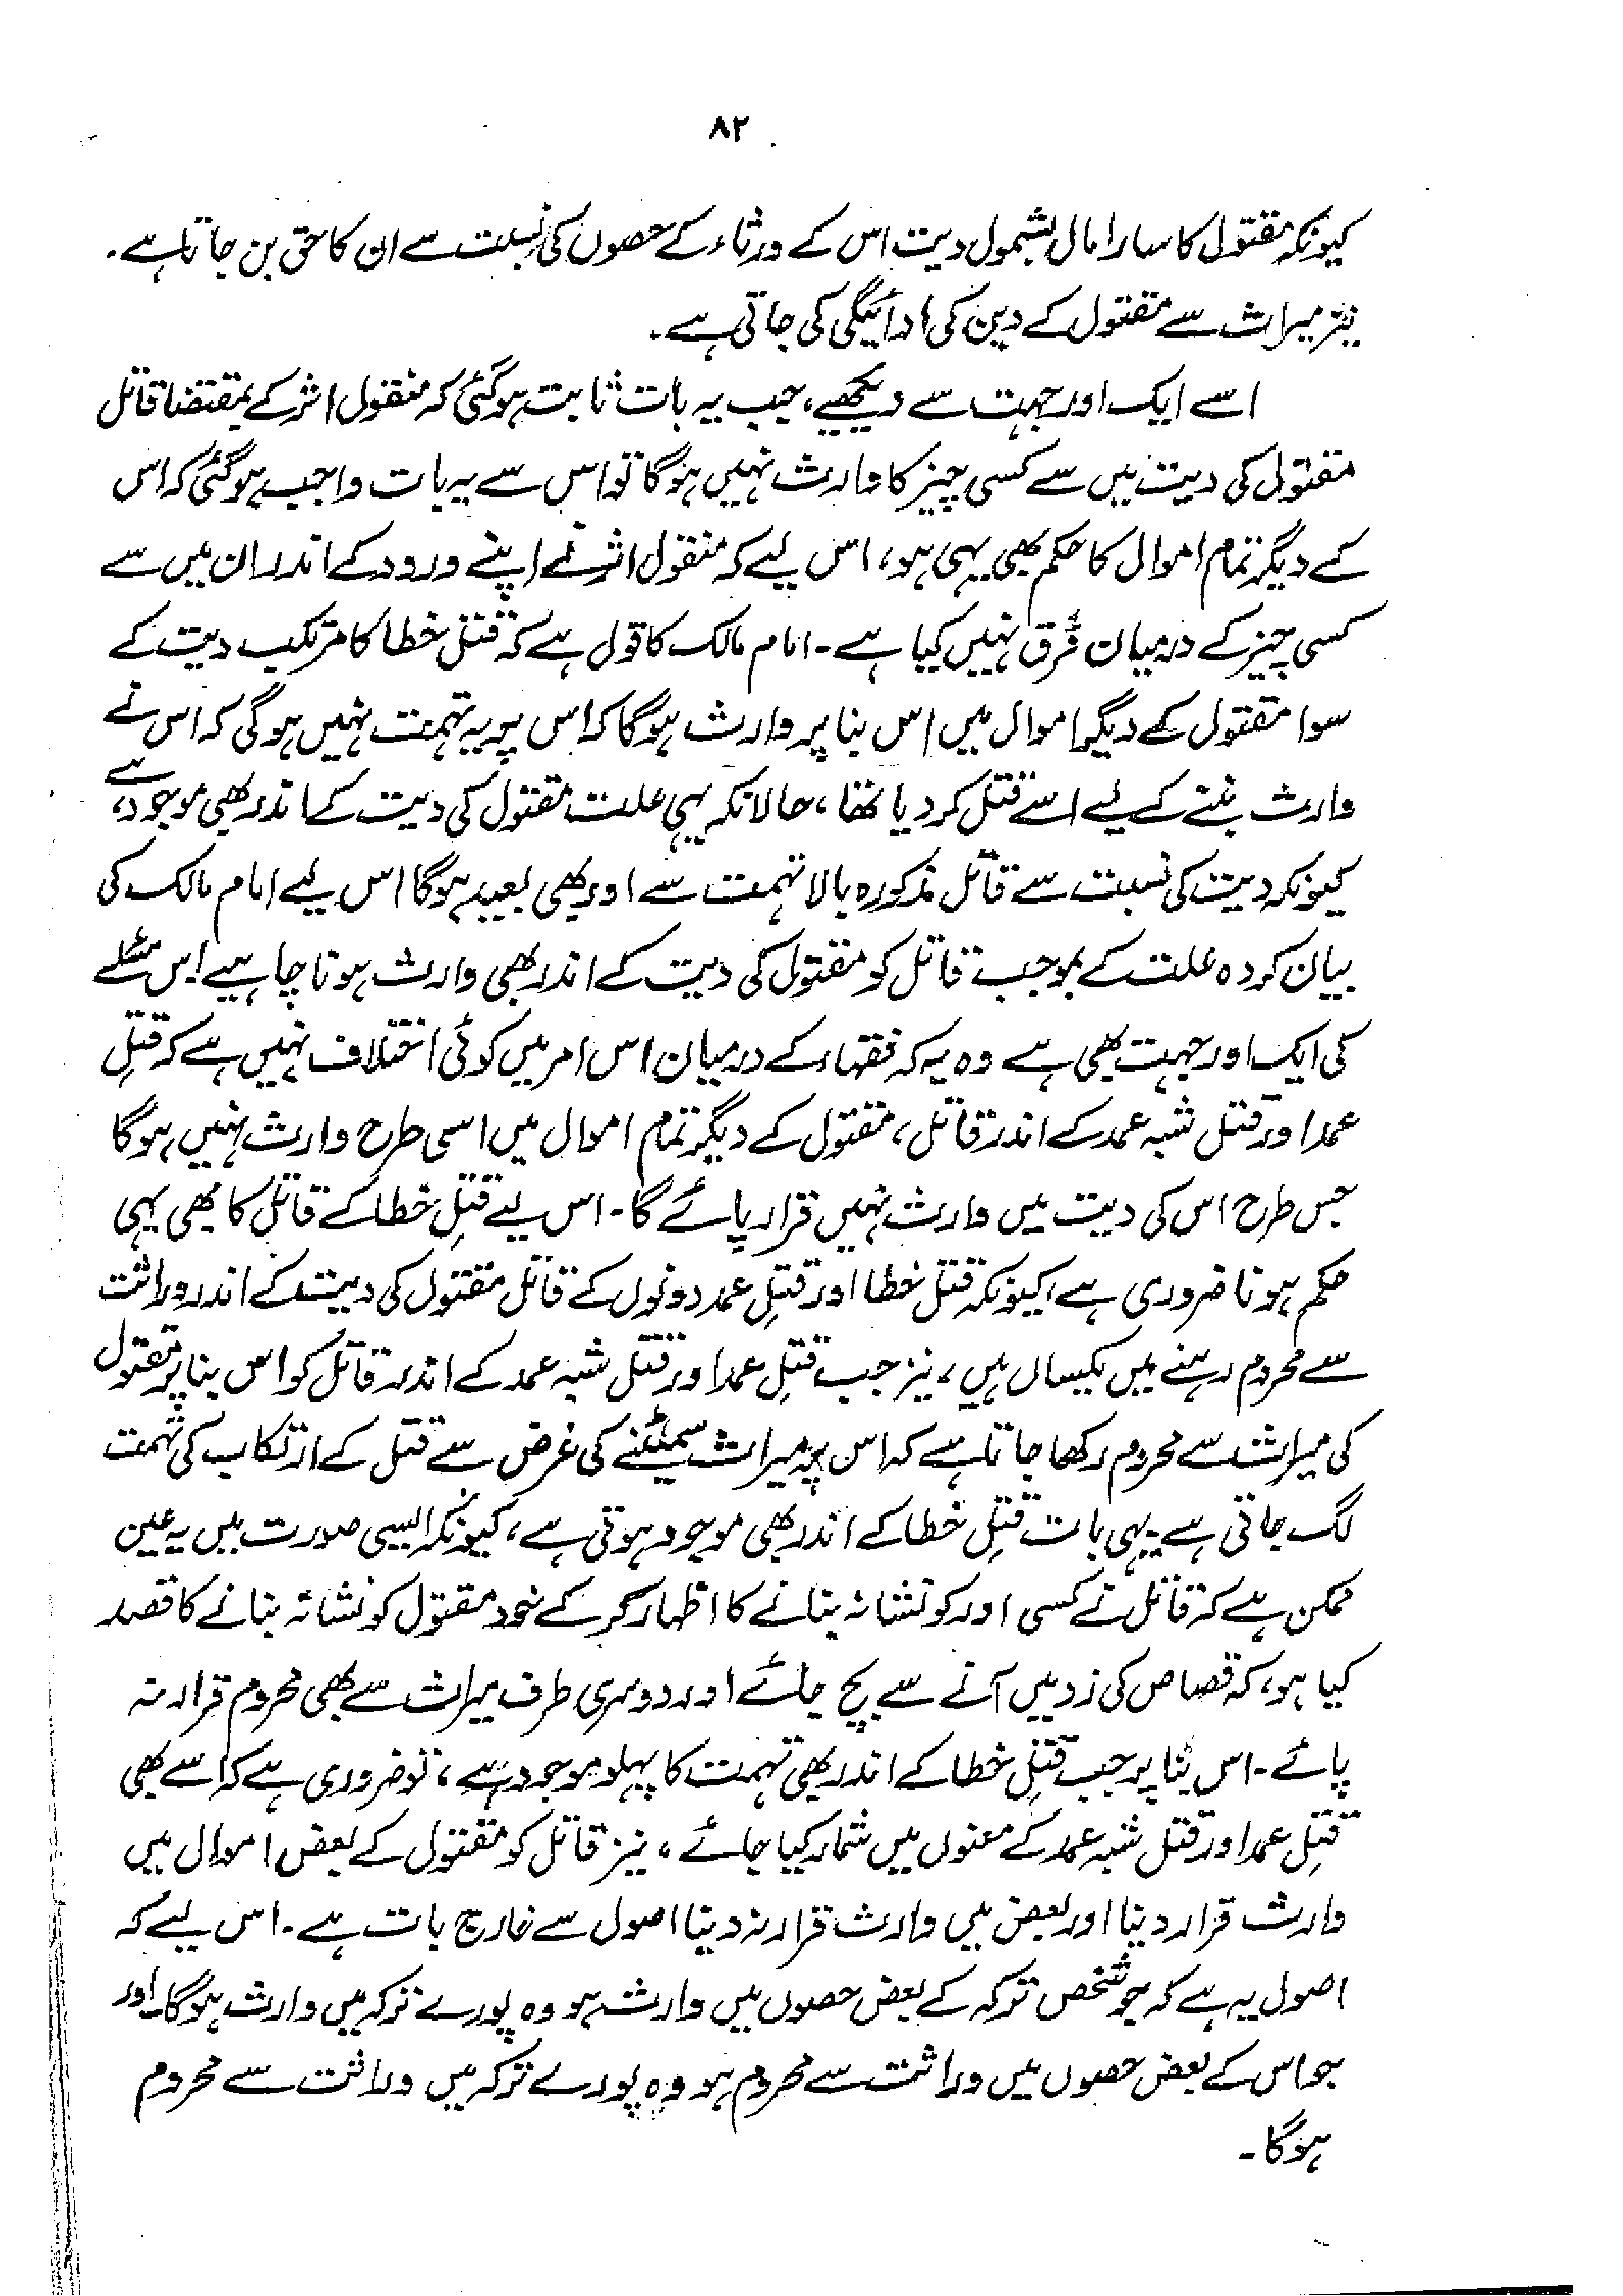 ۸۲
کیونکہ مقتول کا سارا مال بشمول دیت اس کے ورثاء کے حصوں کی نسبت سے ان کا حق بن جاتا ہے۔
نیز میراث سے مقتول کے دین کی ادائیگی کی جاتی ہے۔
اسے ایک اور جہت سے دیکھیے، جب یہ بات ثابت ہوگئی کہ منقول اثر کے بمقتضا قاتل
مقتول کی دیت میں سے کسی چیز کا وارث نہیں ہوگا تو اس سے یہ بات واجب ہوگئی کہ اس
کے دیگر تمام اموال کا حکم بھی یہی ہو، اس لیے کہ منقول اثر نے اپنے ورود کے اندر ان میں سے
کسی چیز کے درمیان فرق نہیں کیا ہے۔ امام مالک کا قول ہے کہ قتل خطا کا مرتکب دیت کے
سوا مقتول کے دیگر اموال میں اس بنا پر وارث ہوگا کہ اس پر یہ تہمت نہیں ہوگی کہ اس نے
وارث بننے کے لیے اسے قتل کر دیا تھا، حالانکہ یہی علت مقتول کی دیت کے اندر بھی موجود ہے،
کیونکہ دیت کی نسبت سے قاتل مذکورہ بالا تہمت سے اور بھی بعید ہوگا اس لیے امام مالک کی
بیان کردہ علت کے بموجب قاتل کو مقتول کی دیت کے اندر بھی وارث ہونا چاہیے اس مسئلے
کی ایک اور جہت بھی ہے وہ یہ کہ فقہاء کے درمیان اس امر میں کوئی اختلاف نہیں ہے کہ قتلِ
عمد اور قتل شبہ عمد کے اندر قاتل، مقتول کے دیگر تمام اموال میں اسی طرح وارث نہیں ہوگا
جس طرح اس کی دیت میں وارث نہیں قرار پائے گا۔ اس لیے قتلِ خطا کے قاتل کا بھی یہی
حکم ہونا ضروری ہے، کیونکہ قتل خطا اور قتلِ عمد دونوں کے قاتل مقتول کی دیت کے اندر وراثت
سے محروم رہنے میں یکساں ہیں، نیز جب قتلِ عمد اور قتل شبہ عمد کے اندر قاتل کو اس بنا پر مقتول
کی میراث سے محروم رکھا جاتا ہے کہ اس پر میراث سمیٹنے کی غرض سے قتل کے ارتکاب کی تہمت
لگ جاتی ہے یہی بات قتلِ خطا کے اندر بھی موجود ہوتی ہے، کیونکہ ایسی صورت میں یہ عین
ممکن ہے کہ قاتل نے کسی اور کو نشانہ بنانے کا اظہار کر کے خود مقتول کو نشانہ بنانے کا قصد
کیا ہو، کہ قصاص کی زد میں آنے سے بچ جائے اور دوسری طرف میراث سے بھی محروم قرار نہ
پائے۔ اس بنا پر جب قتلِ خطا کے اندر بھی تہمت کا پہلو موجود ہے، تو ضروری ہے کہ اسے بھی
قتلِ عمد اور قتل شبہ عمد کے معنوں میں شمار کیا جائے، نیز قاتل کو مقتول کے بعض اموال میں
وارث قرار دینا اور بعض میں وارث قرار نہ دینا اصول سے خارج بات ہے۔ اس لیے کہ
اصول یہ ہے کہ جو شخص ترکہ کے بعض حصوں میں وارث ہو وہ پورے ترکہ میں وارث ہوگا۔ اور
جو اس کے بعض حصوں میں وراثت سے محروم ہو وہ پورے ترکہ میں وراثت سے محروم
ہوگا۔